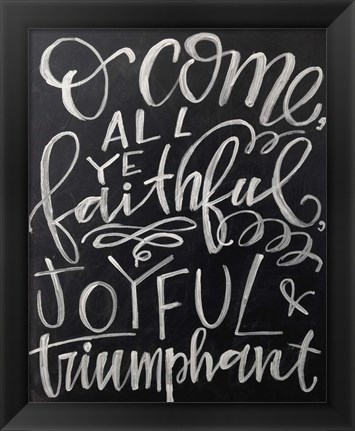 O come,
ALL
YE
faithful,
JOYFUL &
triumphant